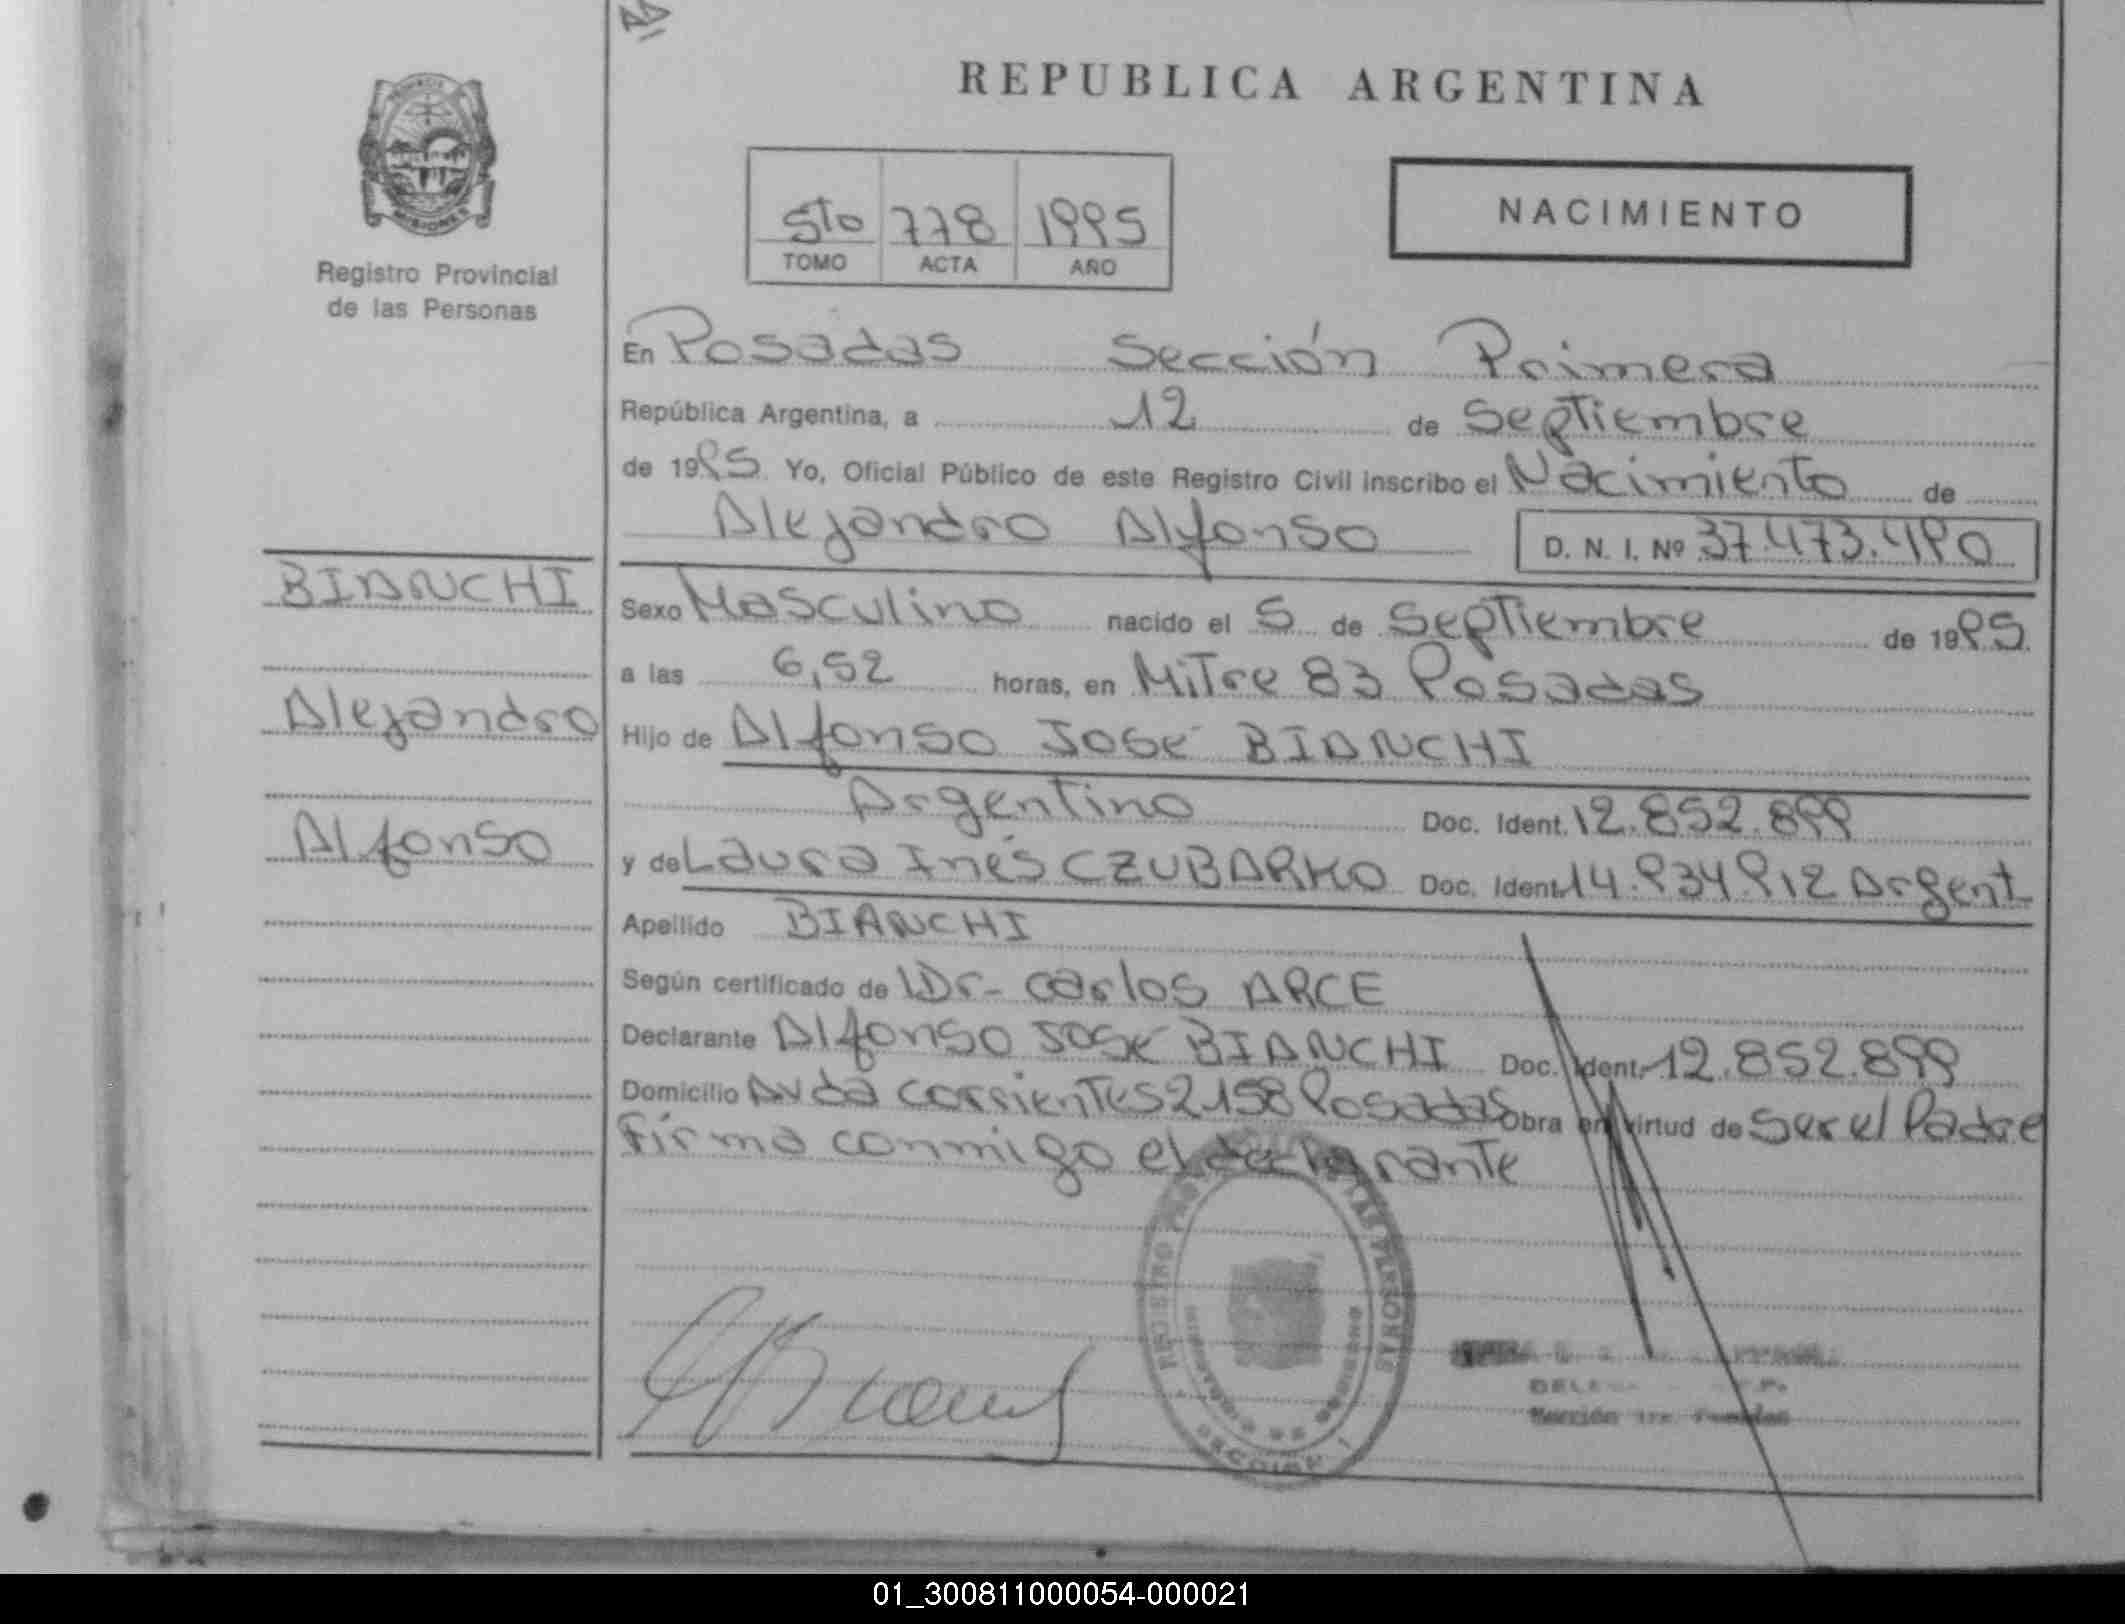 REPUBLICA ARGENTINA
PROVINCIA
MISIONES
Registro Provincial
de las Personas
5to 778 1995
TOMO ACTA AÑO
NACIMIENTO
En Posadas Sección Primera
República Argentina, a 12 de Septiembre
de 1995 Yo, Oficial Público de este Registro Civil inscribo el Nacimiento de
Alejandro Alfonso D. N. I. Nº 37.473.490
BIANCHI
Alejandro
Alfonso
Sexo Masculino nacido el 5 de Septiembre de 1995.
a las 6,52 horas, en Mitre 83 Posadas
Hijo de Alfonso José BIANCHI
Argentino Doc. Ident. 12.852.899
y de Laura Inés CZUBARKO Doc. Ident. 14.934.912 Argent
Apellido BIANCHI
Según certificado de Dr- Carlos ARCE
Declarante Alfonso José BIANCHI Doc. Ident. 12.852.899
Domicilio Avda Corrientes 2158 Posadas Obra en virtud de Ser el Padre
Firma conmigo el declarante
REGISTRO DE LAS PERSONAS
SECCION 1
Sección 1ra Posadas
01_300811000054-000021